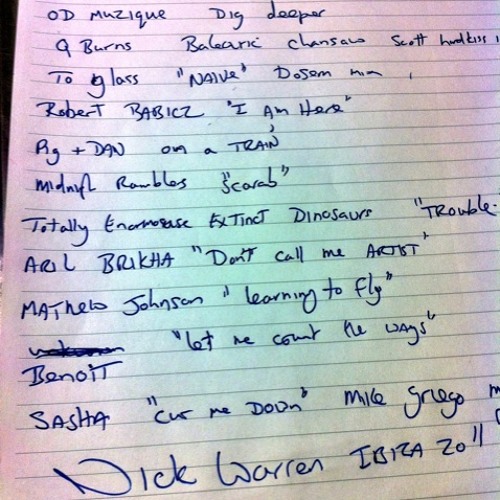 OD MUZIQUE Dig deeper
Q Burns Balearic chansaw Scott hudkiss
To glass "NAIVE" Dosem mix
Robert BABICZ "I Am Here"
Pig + DAN on a TRAIN'
Midnyt Rambles "Scarab"
Totally Enormouse ExTincT Dinosaurs "TROUBLE
ARIL BRIKHA "Don't call me ARTIST"
MATHew Johnson "learning to fly"
"let me count the ways"
BenoiT
SASHA "Cut me DOWN" Mike griego
Nick Warren IBIZA 2011